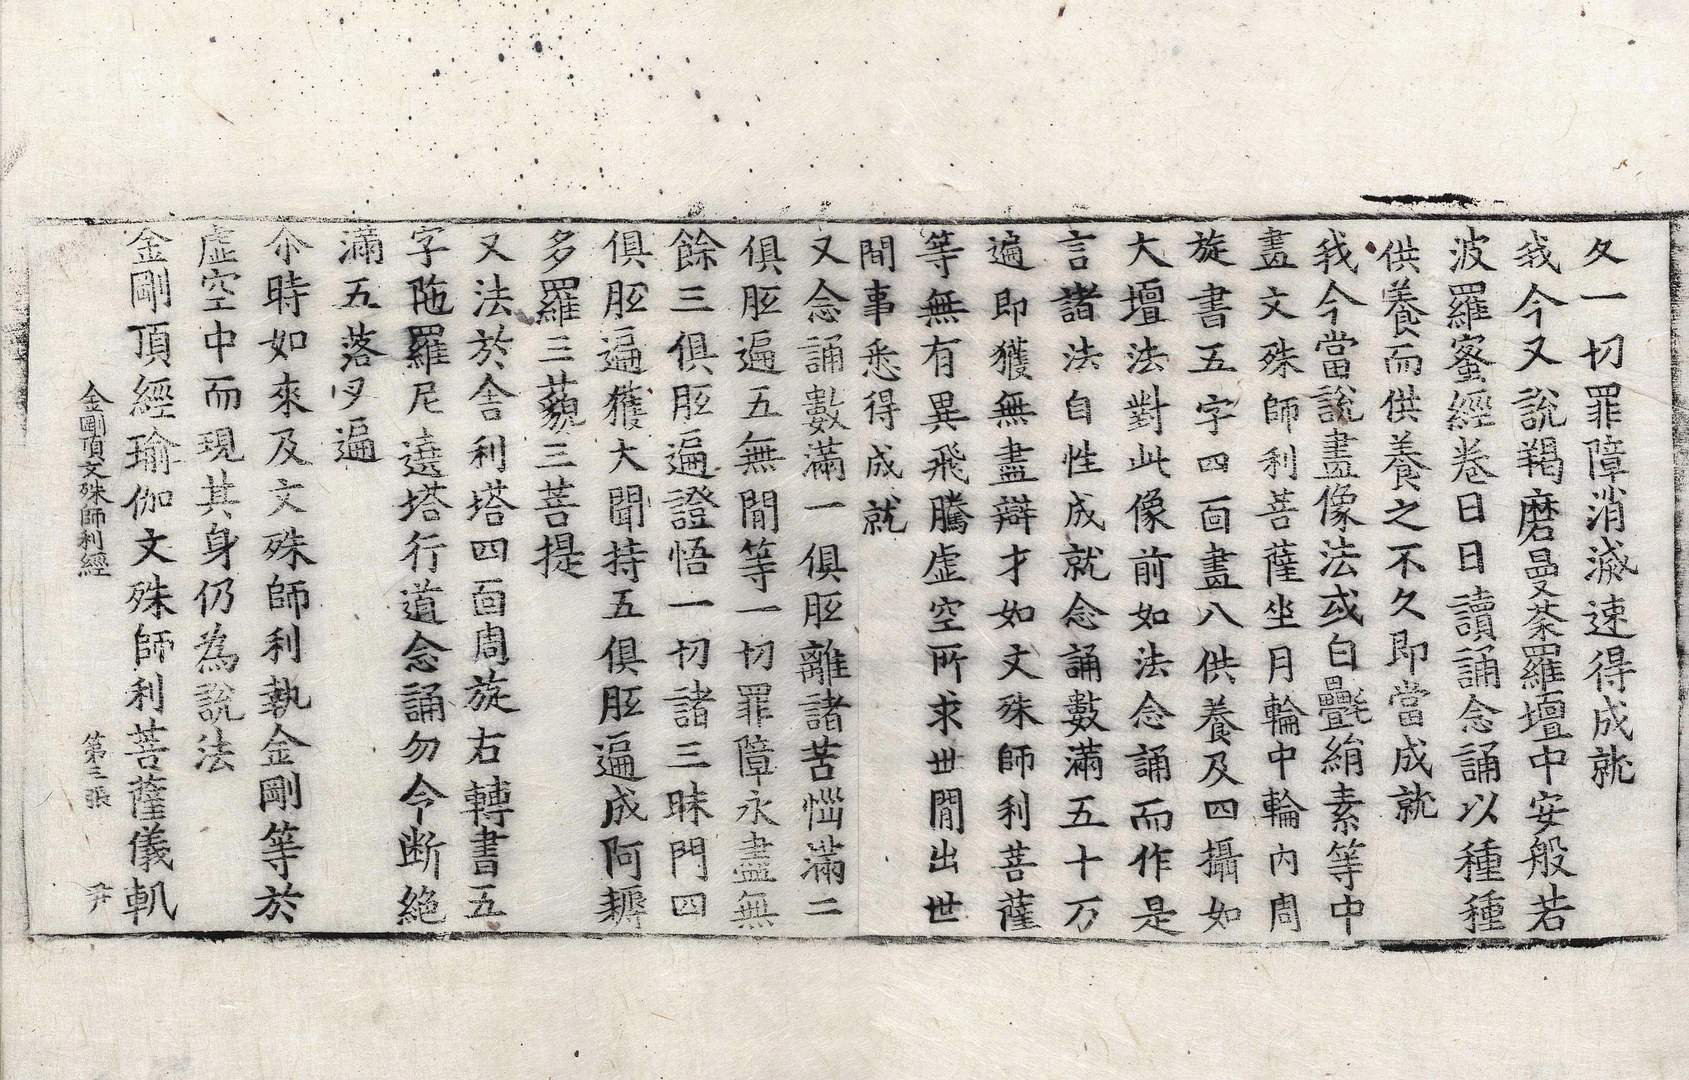 久一切罪障消滅速得成就
我今又說羯磨曼荼羅壇中安般若
波羅蜜經卷日日讀誦念誦以種種
供養而供養之不久即當成就
我今當說畫像法或白㲲絹素等中
畫文殊師利菩薩坐月輪中輪內周
旋書五字四面畫八供養及四攝如
大壇法對此像前如法念誦而作是
言諸法自性成就念誦數滿五十万
遍即獲無盡辯才如文殊師利菩薩
等無有異飛騰虛空所求世閒出世
閒事悉得成就
又念誦數滿一俱胝離諸苦惱滿二
俱胝遍五無閒等一切罪障永盡無
餘三俱胝遍證悟一切諸三昧門四
俱胝遍獲大聞持五俱胝遍成阿耨
多羅三藐三菩提
又法於舍利塔四面周旋右轉書五
字陁羅尼遶塔行道念誦勿令斷絕
滿五落叉遍
尒時如來及文殊師利執金剛等於
虛空中而現其身仍為說法
金剛頂經瑜伽文殊師利菩薩儀軌
金剛頂文殊師利經 第三張 尹